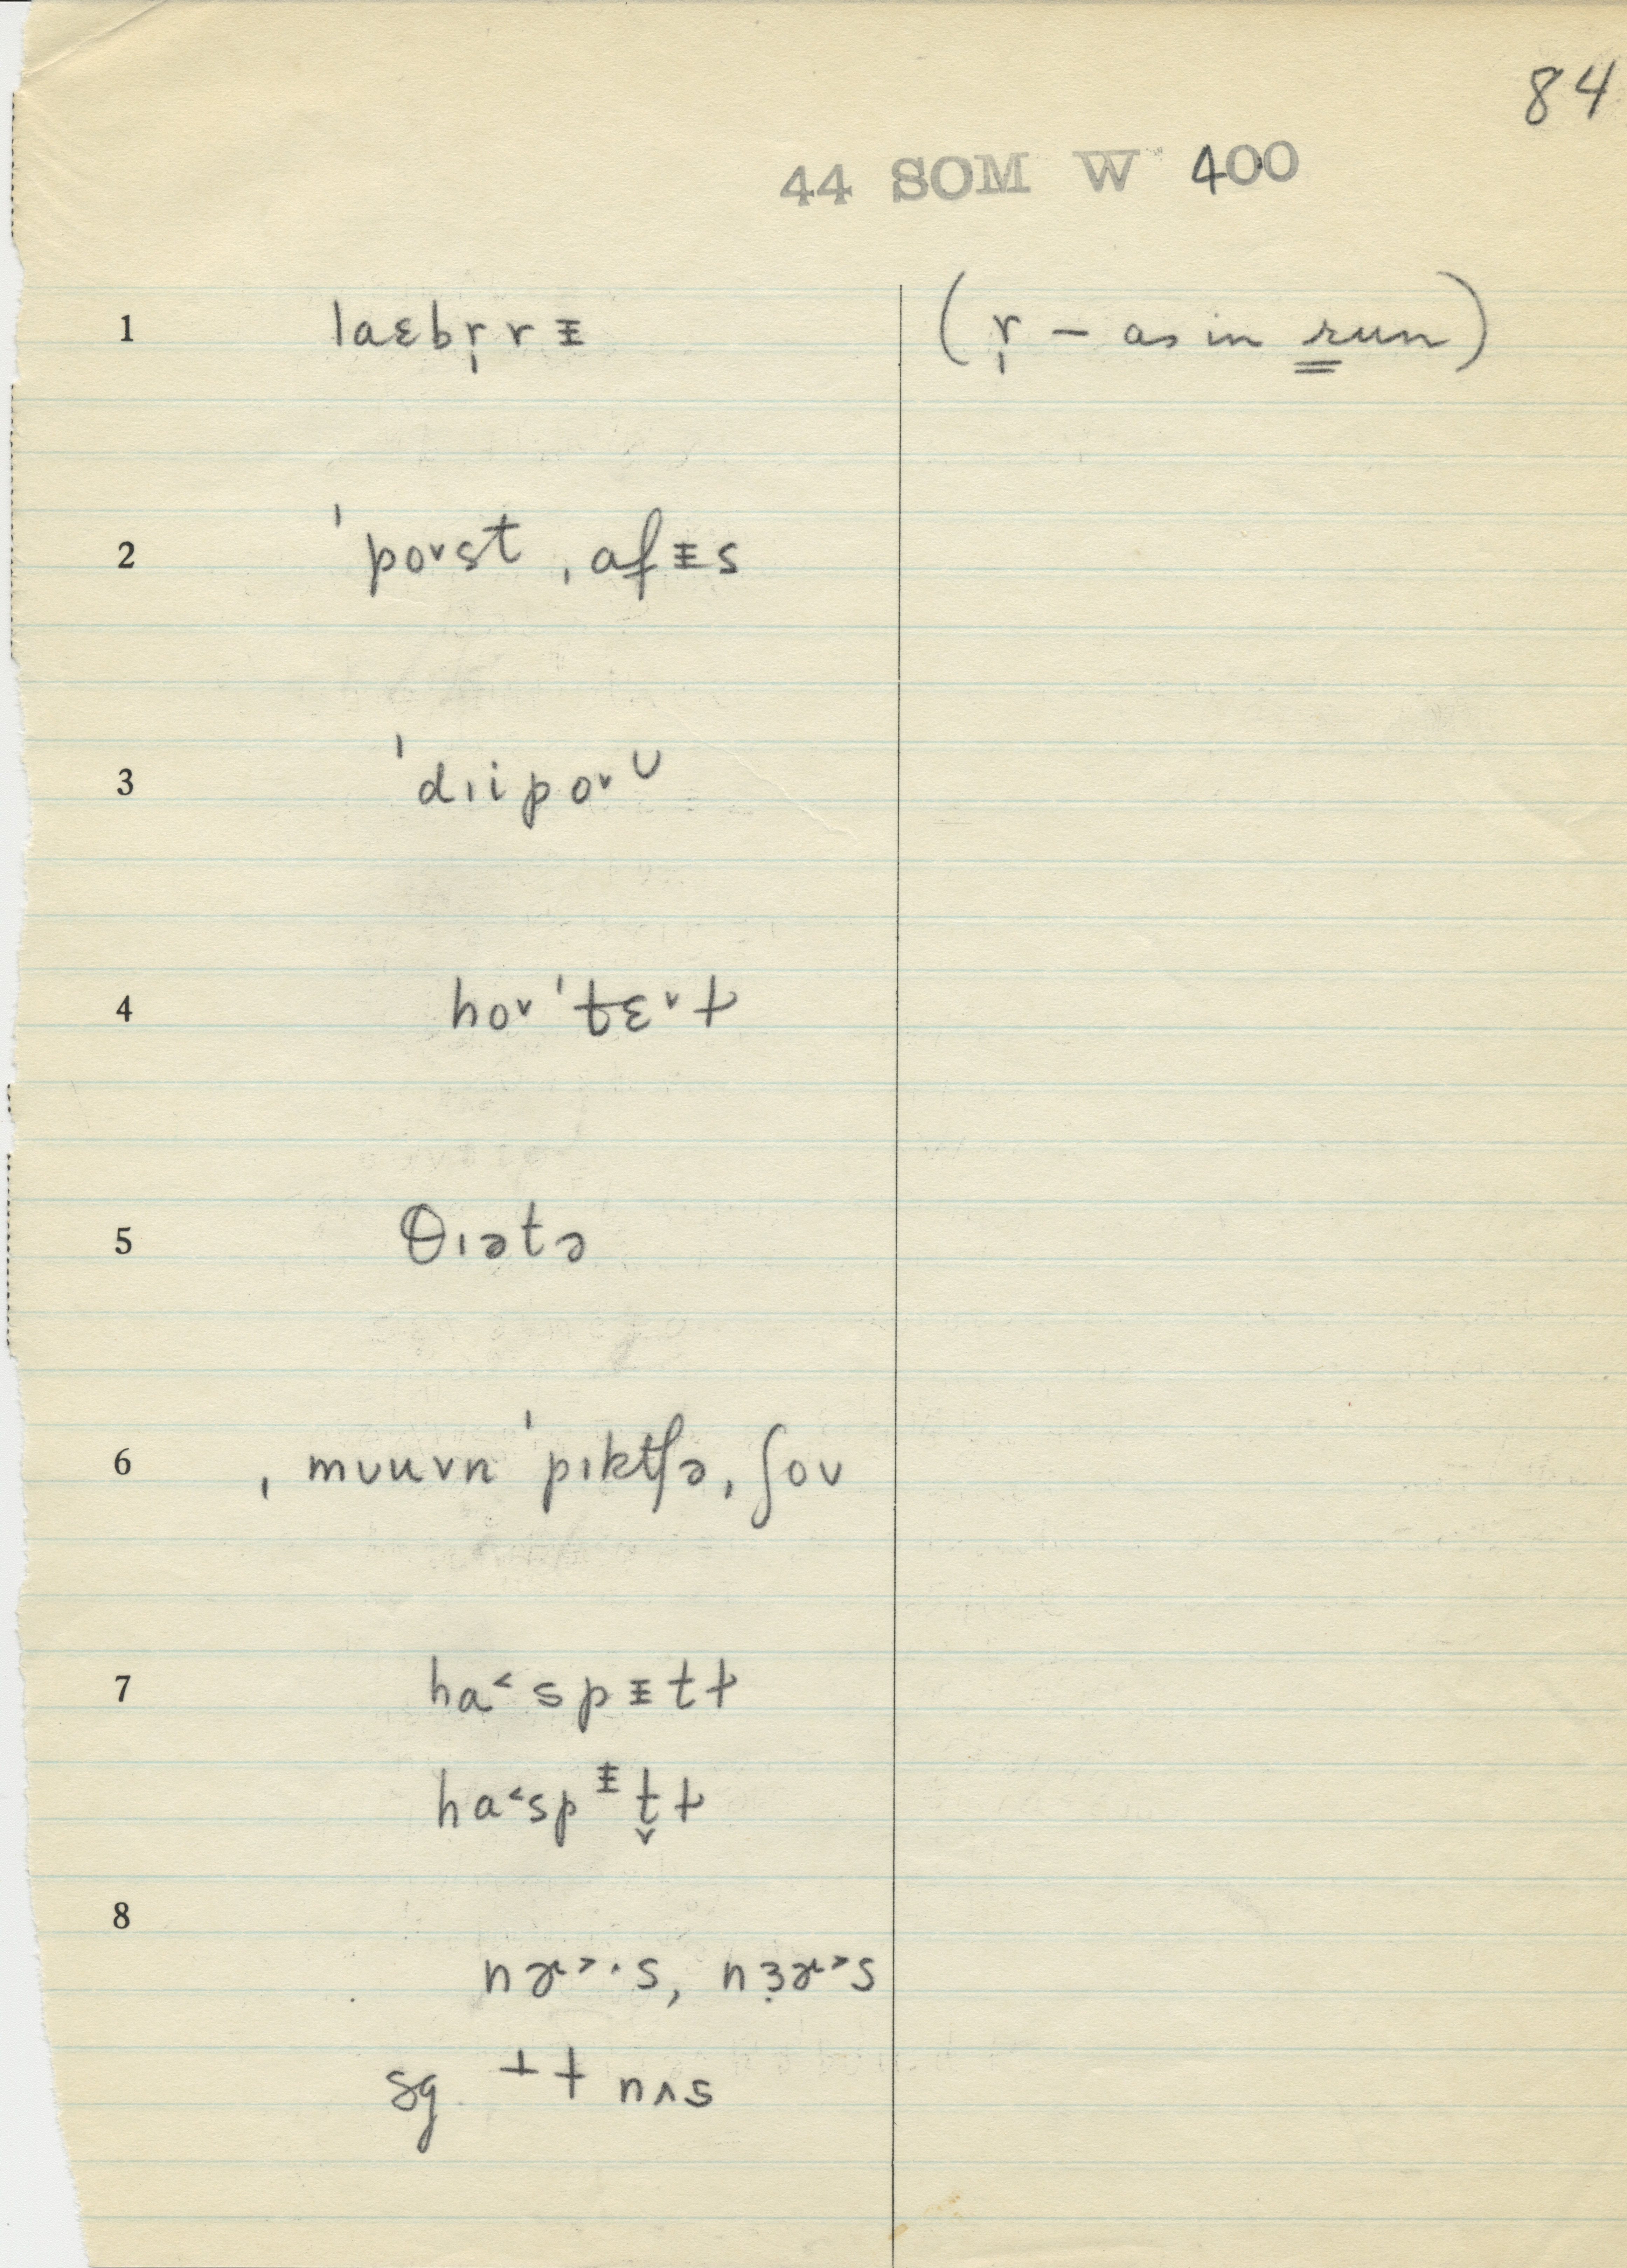 84
44 SOM W 400
1 laɛbr̩rᵻ (r̩ – as in run)
2 ˈpo˅st ˌafᵻs
3 ˈdɪipo˅ᴜ
4 ho˅ˈtɛ˅ɫ
5 θɪətə
6 ˌmʊuvn ˈpɪktʃə ˌʃoʊ
7 ha˂spᵻtɫ
ha˂spᵻt̬ɫ
8
nɚ˃·s, nɜ̣ɚ˃s
sg ⊥ɫ nʌs